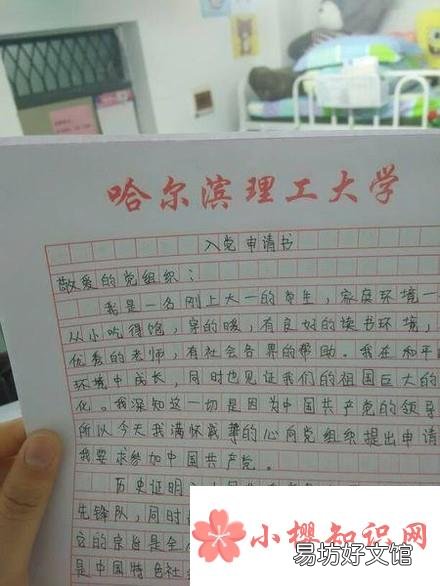 哈尔滨理工大学
入党申请书
敬爱的党组织：
我是一名刚上大一的学生，家庭环境一
从小吃得饱，穿的暖，有良好的读书环境，
优秀的老师，有社会各界的帮助。我在和平
环境中成长，同时也见证我们的祖国巨大的
化。我深知这一切是因为中国共产党的领导
所以今天我满怀诚挚的心向党组织提出申请
我要求参加中国共产党。
历史证明
先锋队，同时
党的宗旨是全
是中国特色社
小樱知识网
易坊好文馆